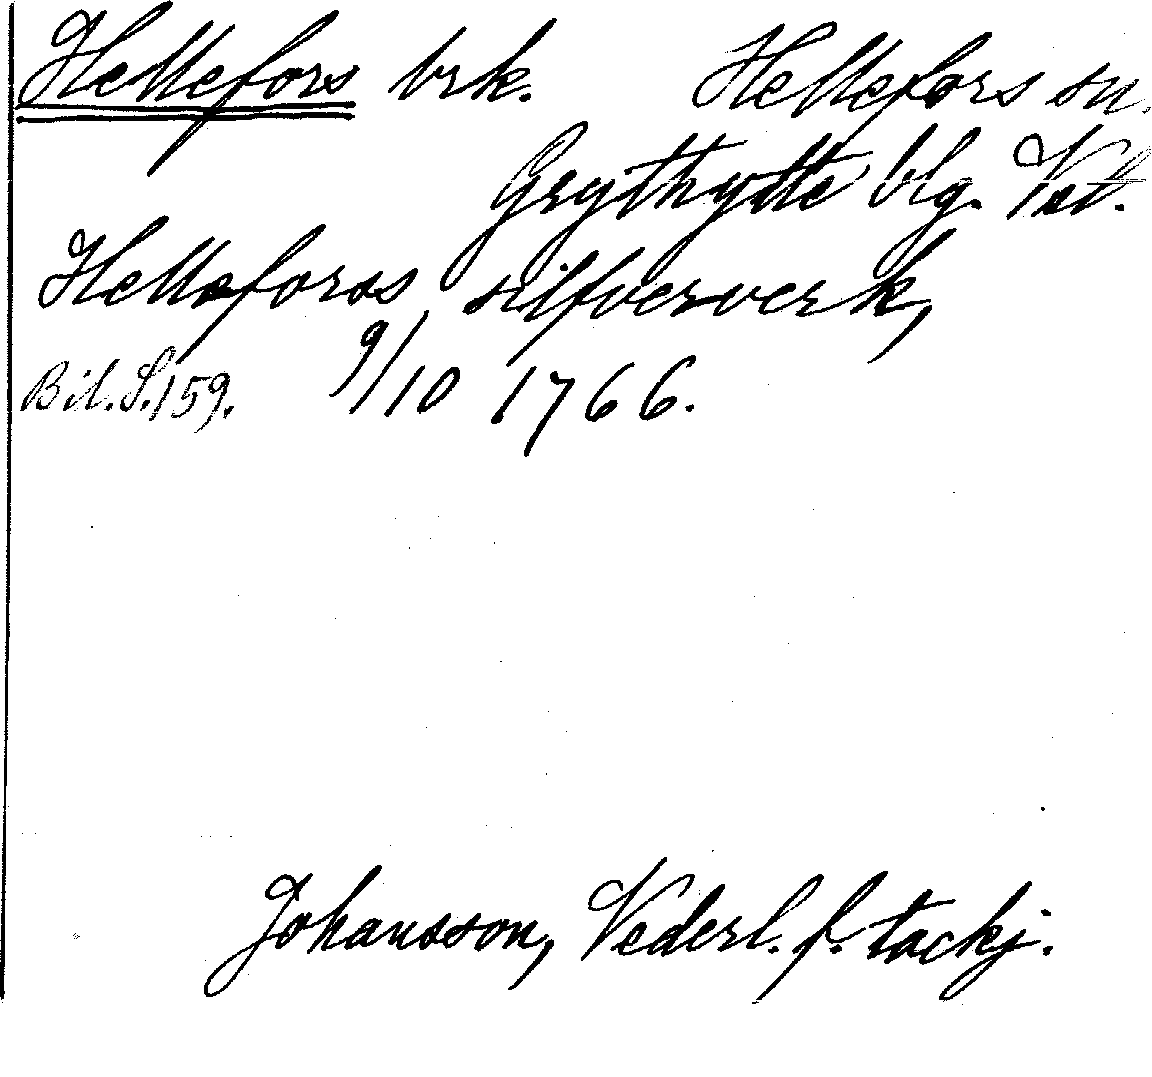 Hellefors brk. Hellefors sn.
Grythytte blg. Vstl.
Helleforss silfververk,
Bil. S. 159. 9/10 1766.
Johansson, Vederl. f. tackj.